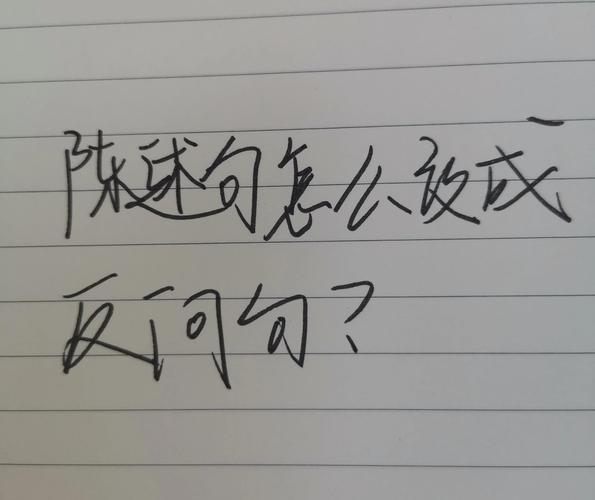 陈述句怎么改成
反问句？